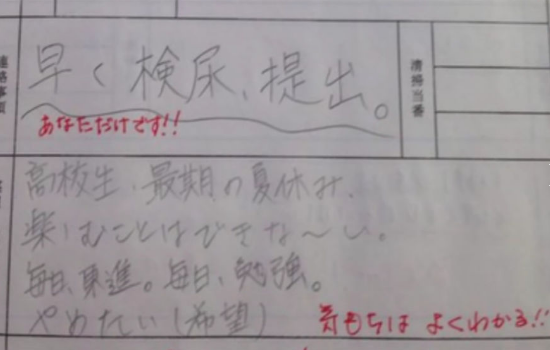 連絡事項
早く検尿、提出。
清掃当番
あなただけです!!
高校生、最期の夏休み、
楽しむことはできな〜い。
毎日、東進。毎日、勉強。
やめたい(希望)
気もちは よくわかる!!